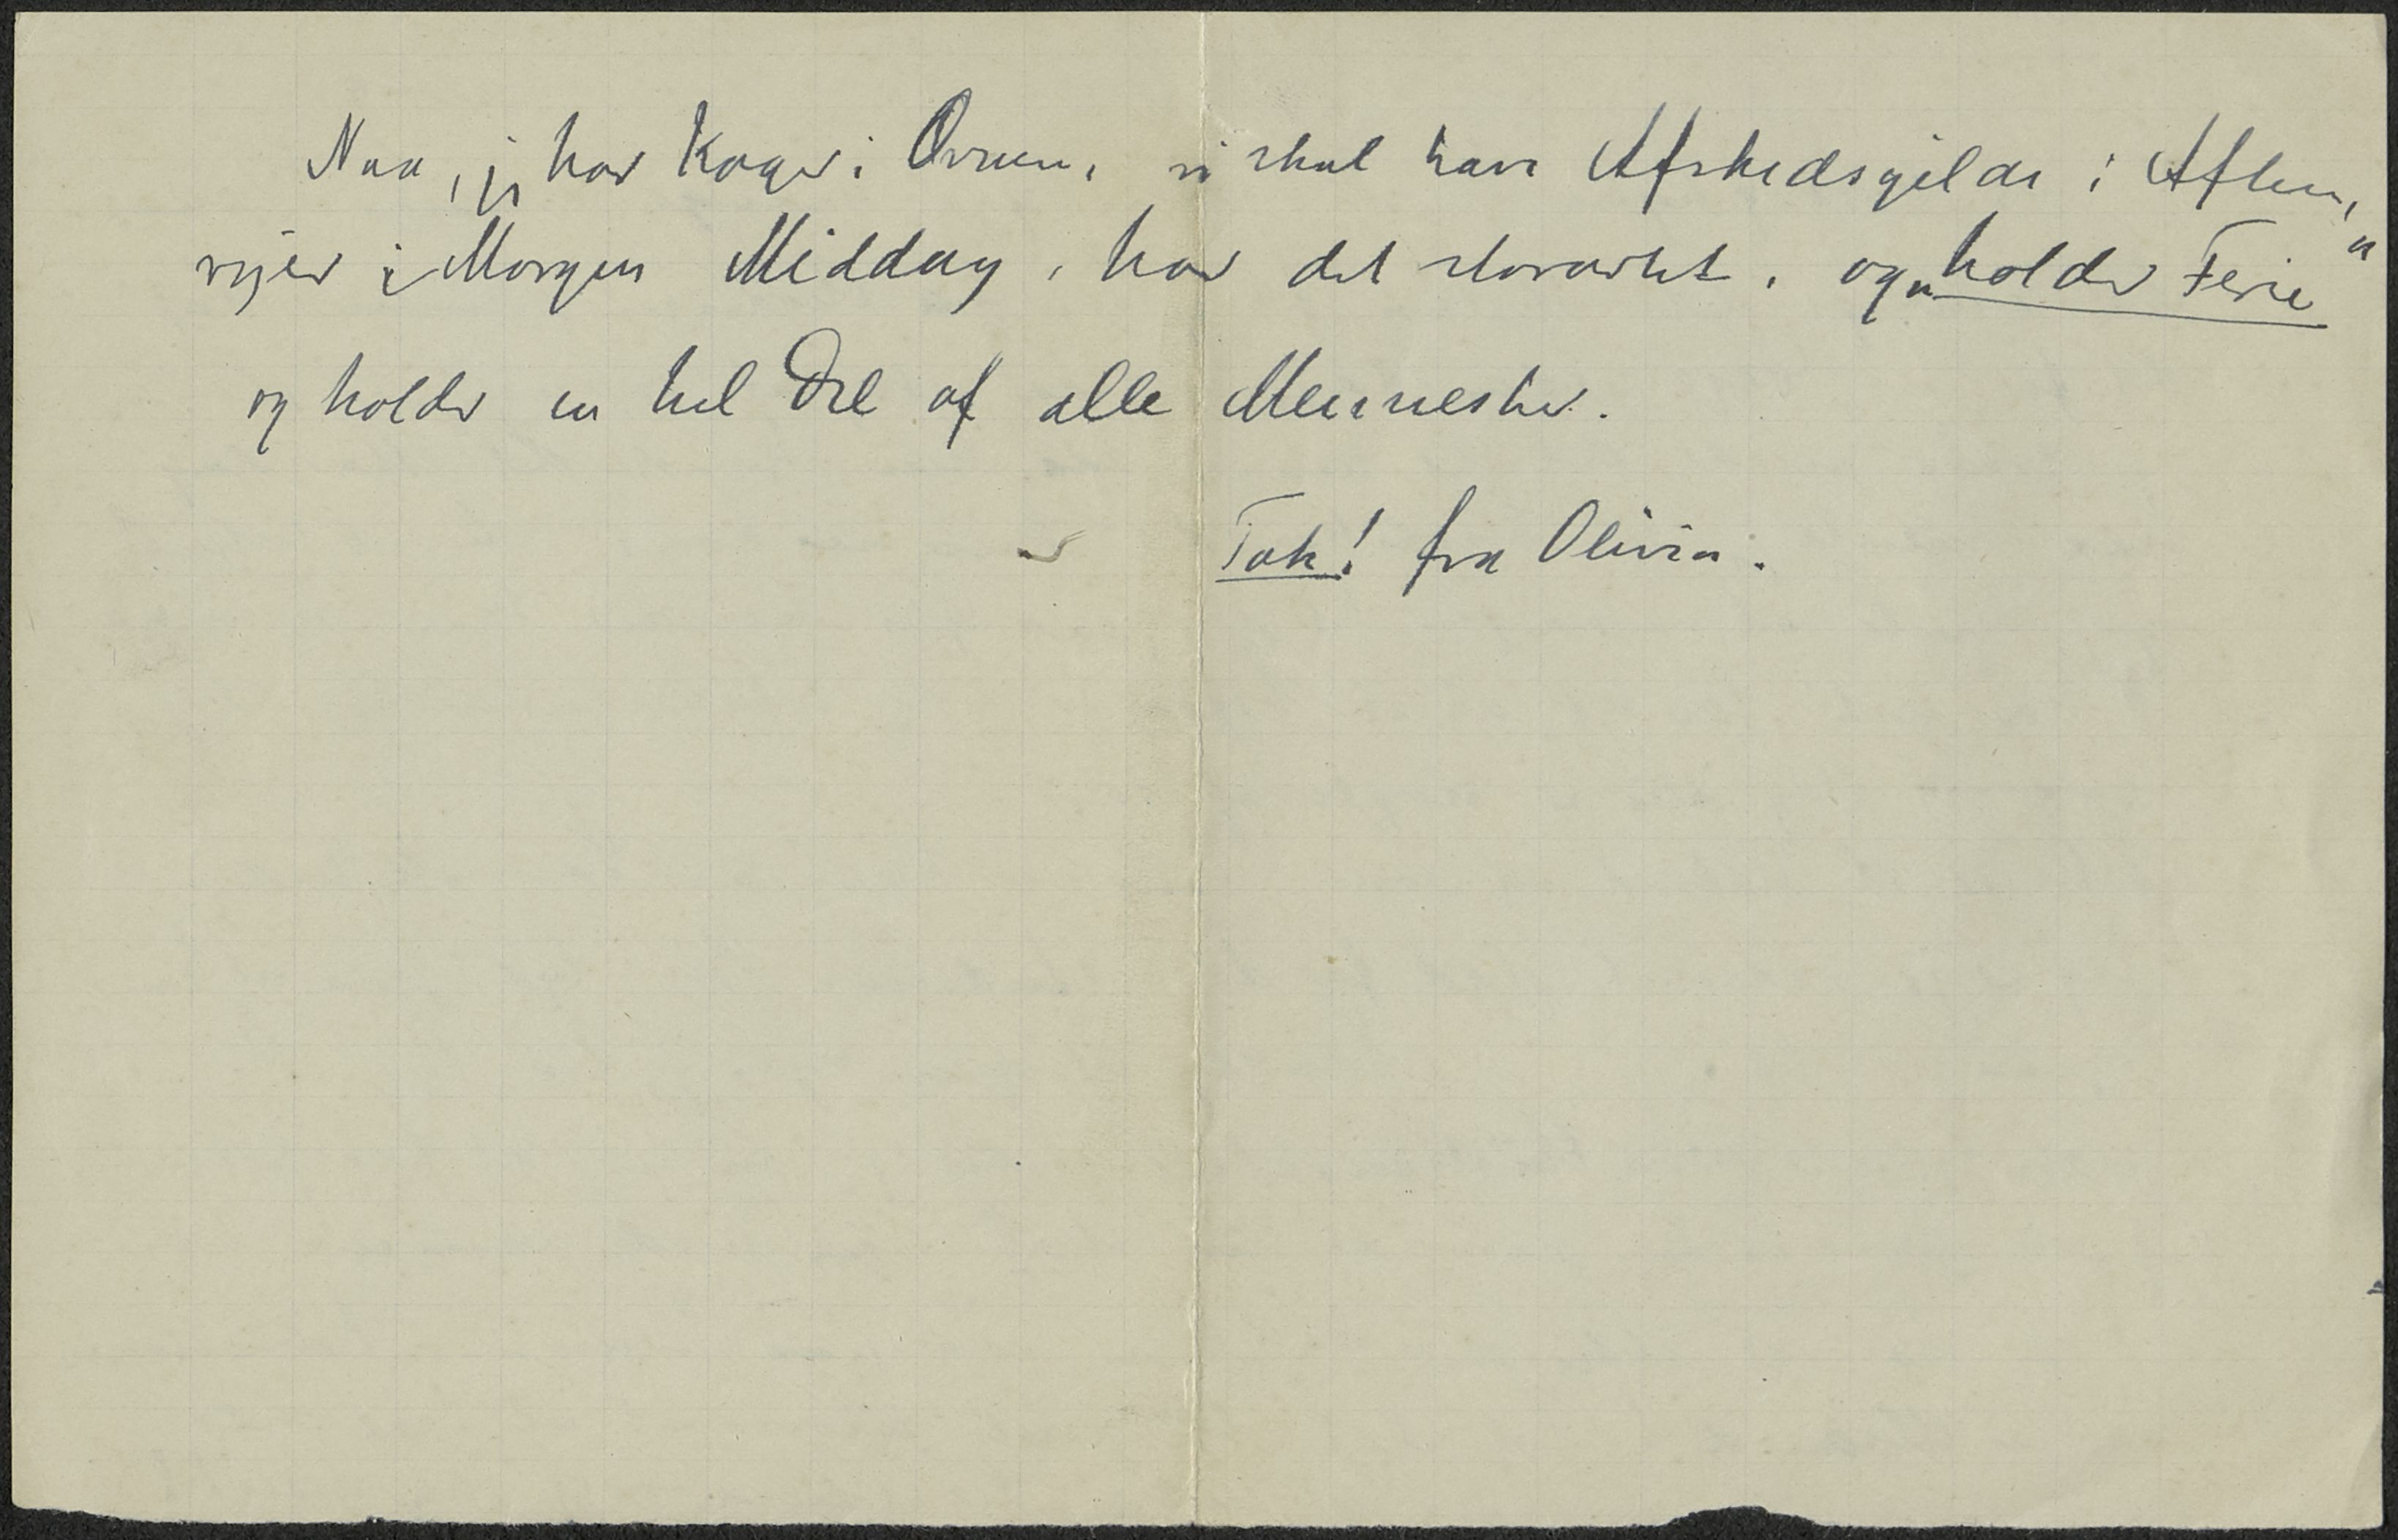 Naa, jeg har Kager i Ovnen, vi skal have Afskedsgilde i Aften,
rejser i Morgen Middag, har det storartet, og „holder Ferie“
og holder en hel Del af alle Mennesker.
Tak! fra Olivia.